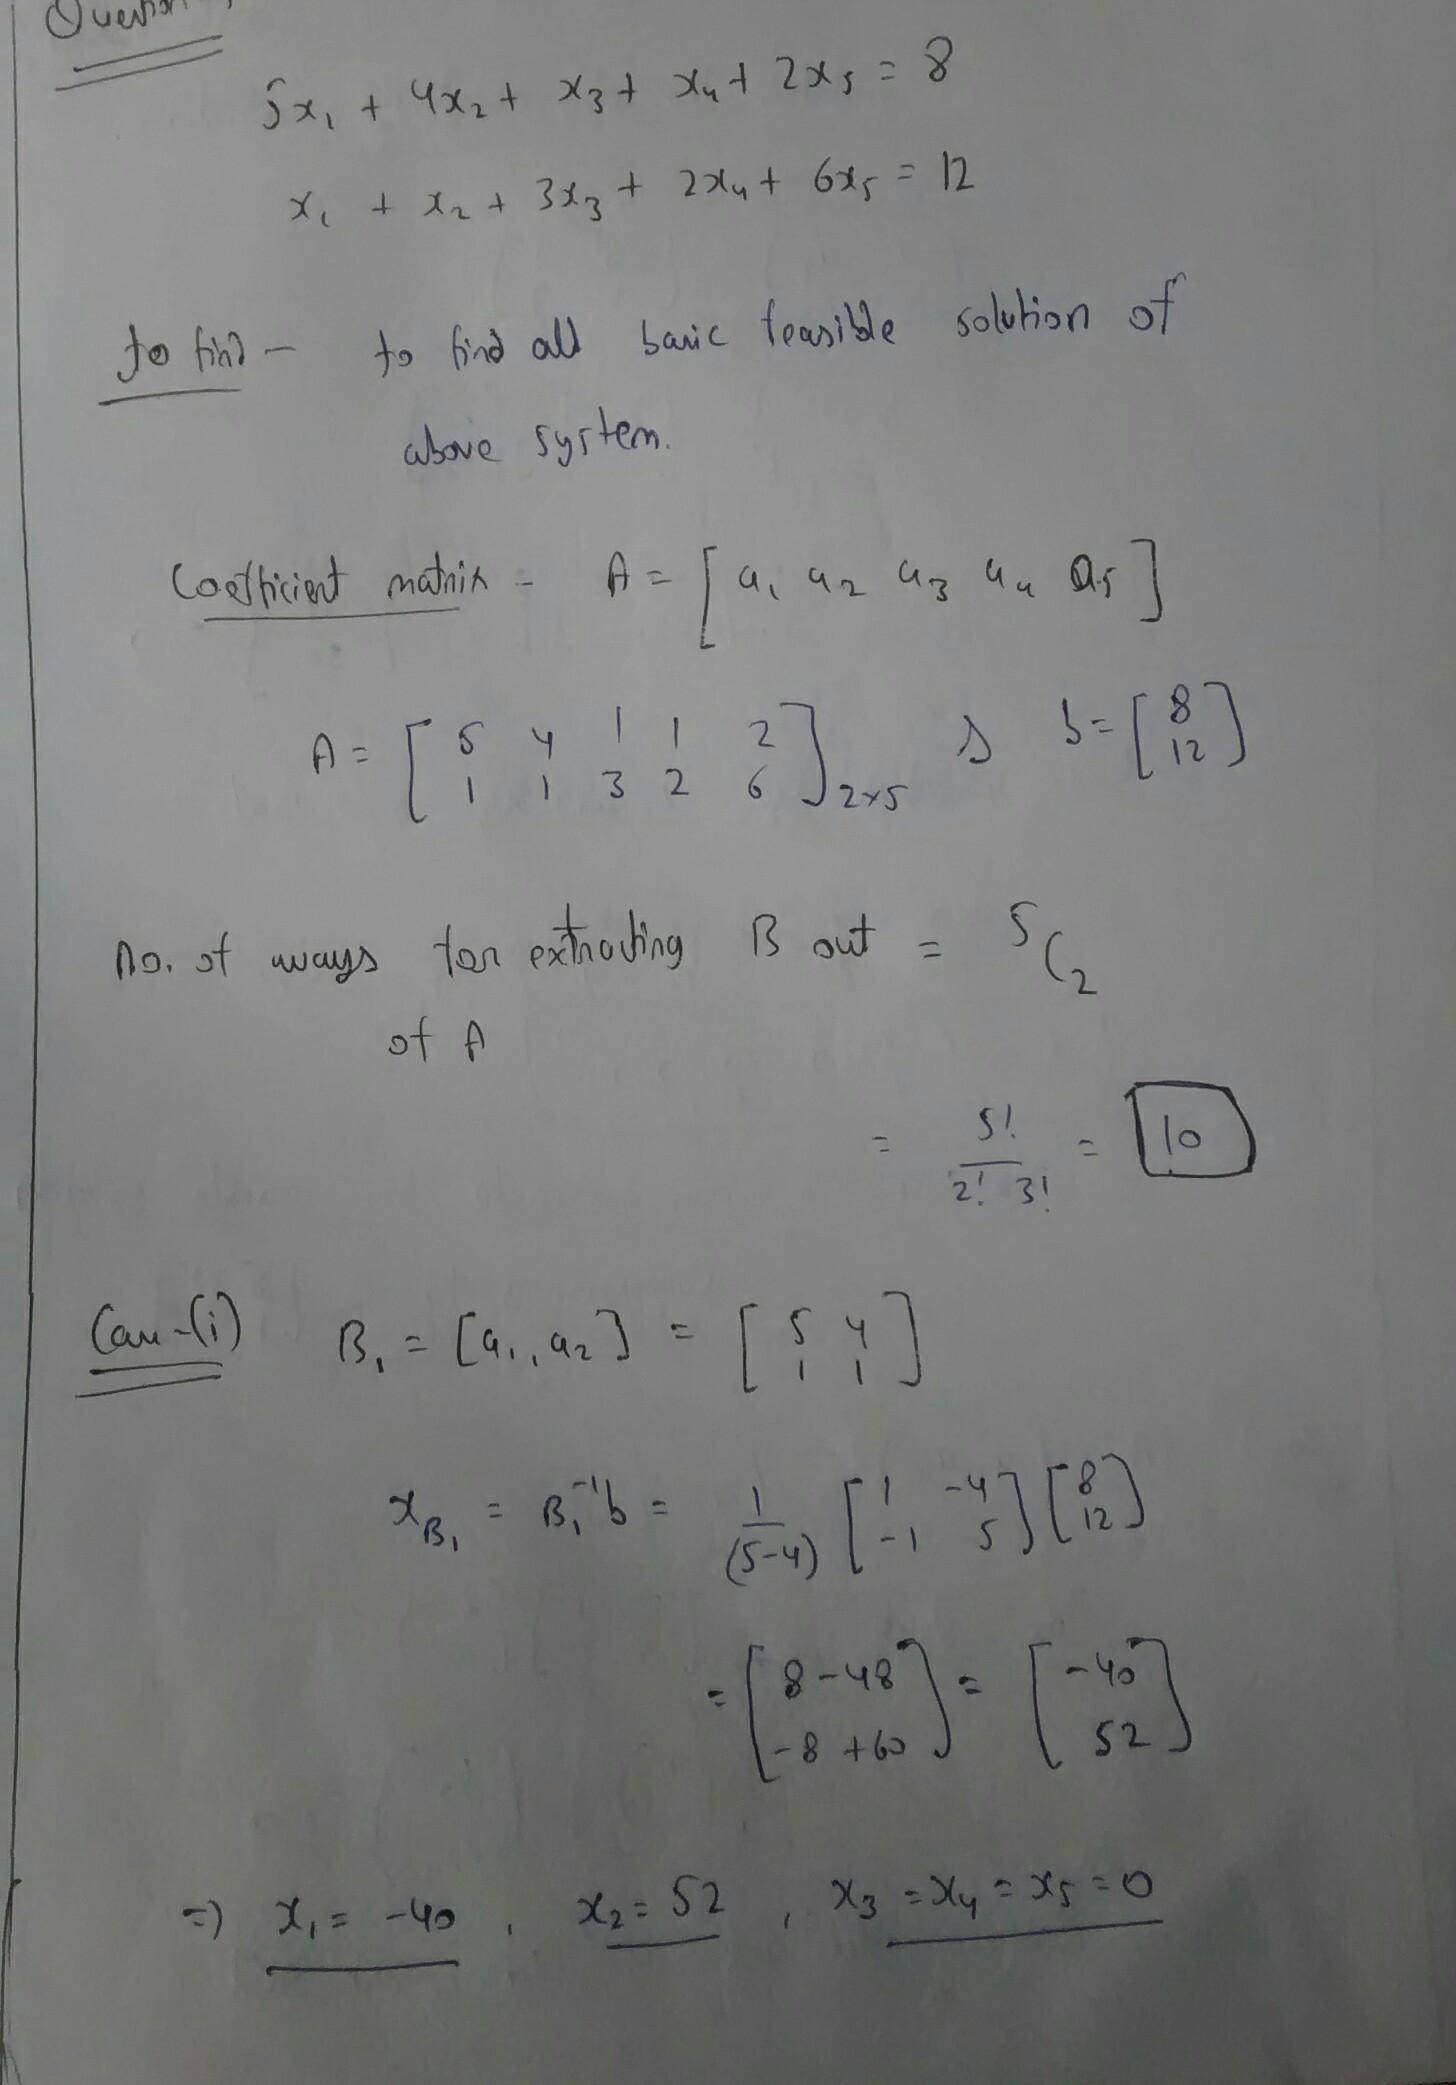 Question
5x₁ + 4x₂ + x₃ + x₄ + 2x₅ = 8
x₁ + x₂ + 3x₃ + 2x₄ + 6x₅ = 12
to find - to find all basic feasible solution of
above system.
Coefficient matrix - A = [a₁ a₂ a₃ a₄ a₅]
A = [5 4 1 1 2; 1 1 3 2 6]₂ₓ₅ , b = [8; 12]
No. of ways for extracting B out = ⁵C₂
of A
= 5!/(2! 3!) = 10
Case-(i) B₁ = [a₁, a₂] = [5 4; 1 1]
x_B₁ = B₁⁻¹b = 1/(5-4) [1 -4; -1 5] [8; 12]
= [8-48; -8+60] = [-40; 52]
=> x₁ = -40 , x₂ = 52 , x₃ = x₄ = x₅ = 0